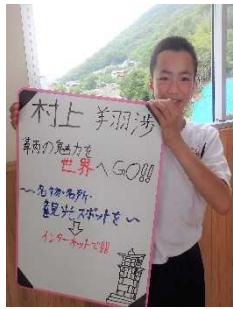 村上 羊羽渉
鞆の魅力を
世界へGO!!!
〜名物・名所・
観光スポットを〜
⇩
インターネットで!!